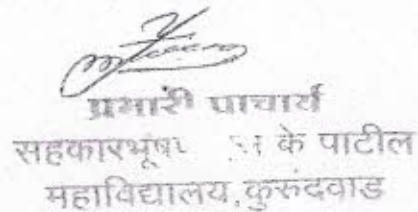 प्रभारी प्राचार्य
सहकारभूषण के पाटील
महाविद्यालय,कुरुंदवाड